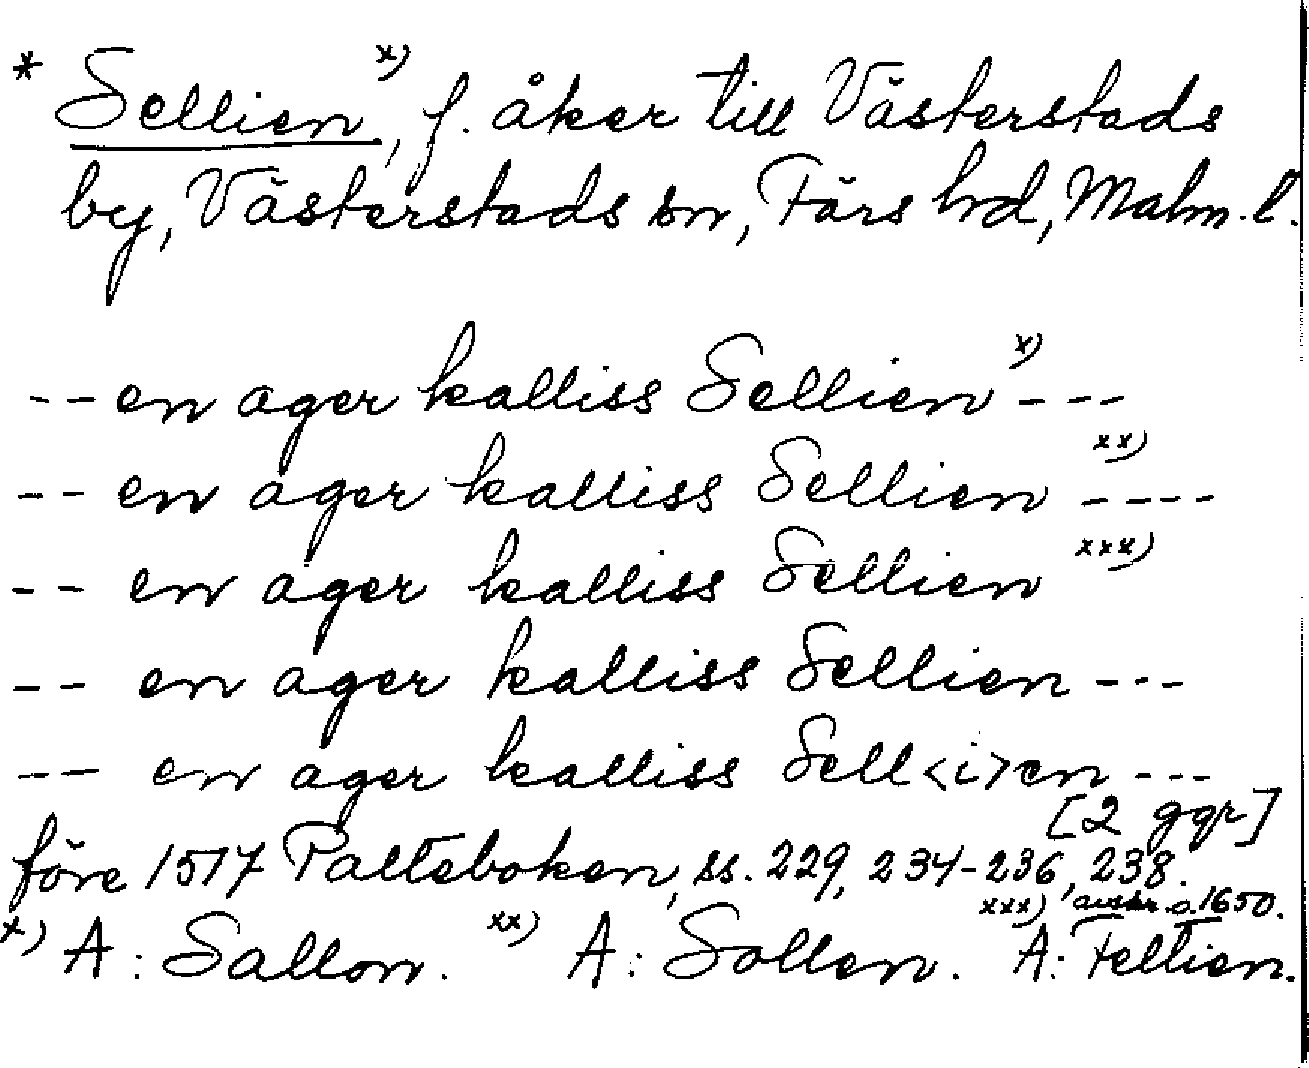 * Sellien x), f. åker till Västerstads
by, Västerstads sn, Färs hd, Malm. l.
-- en ager kalliss Sellien x) ---
-- en ager kalliss Sellien xx) ----
-- en ager kalliss Sellien xxx)
-- en ager kalliss Sellien ---
-- en ager kalliss Sell<i>en ---
[2 ggr]
före 1517 Palteboken, ss. 229, 234-236, 238.
avskr. o. 1650.
x) A: Sallon. xx) A: Sollen. xxx) A: Fellien.